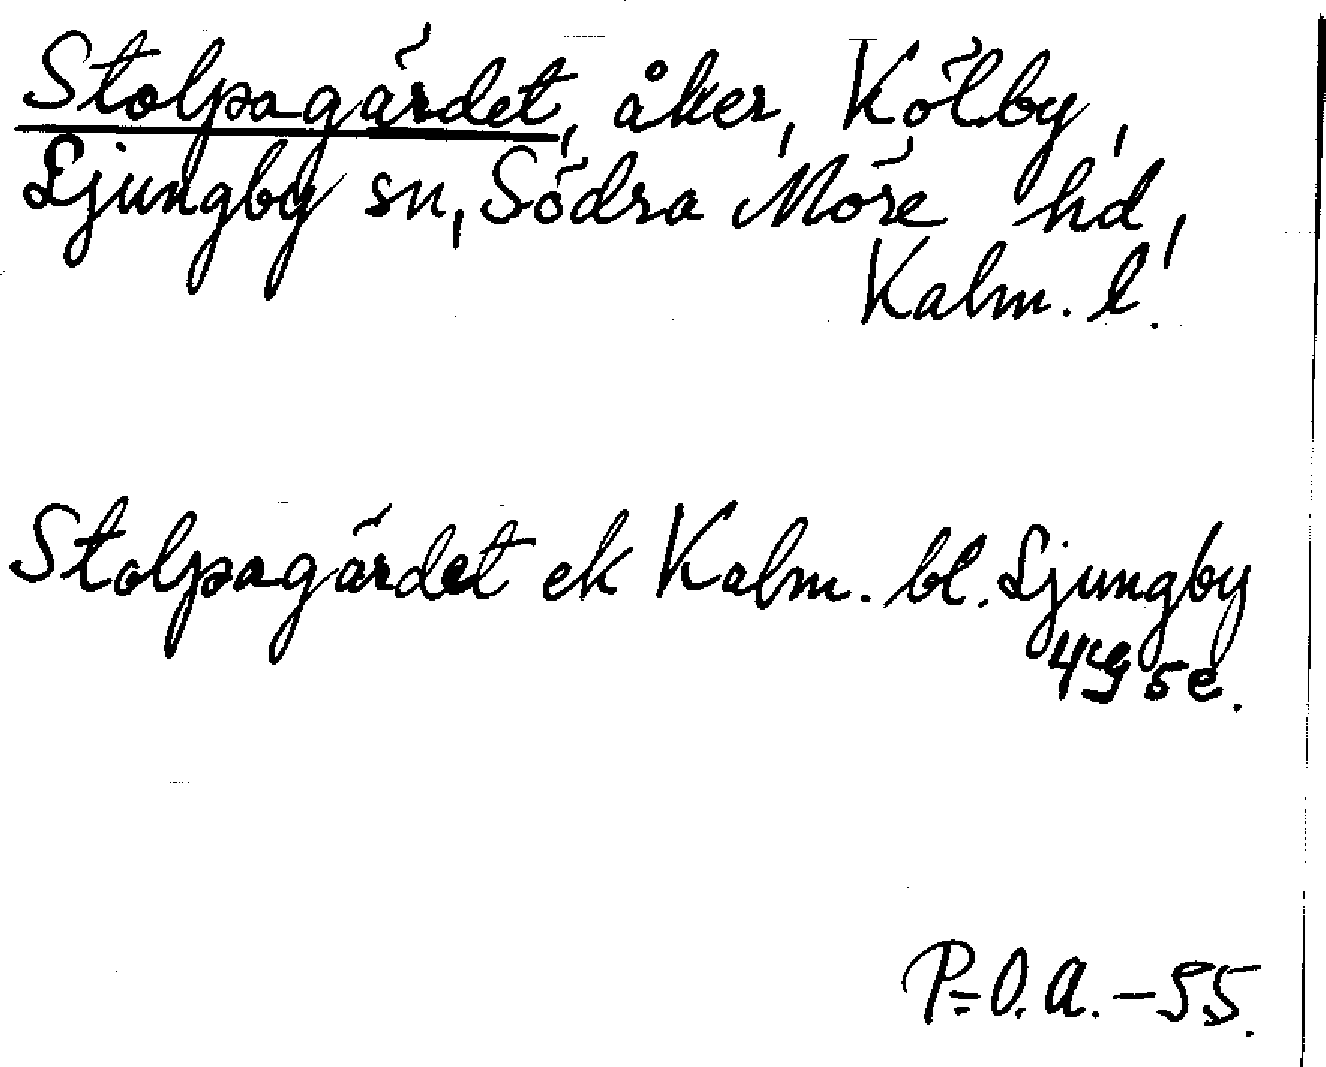 Stolpagärdet, åker, Kölby,
Ljungby sn, Södra Möre hd,
Kalm. l.
Stolpagärdet ek Kalm. bl. Ljungby
4g5e.
P-O.A.-55.